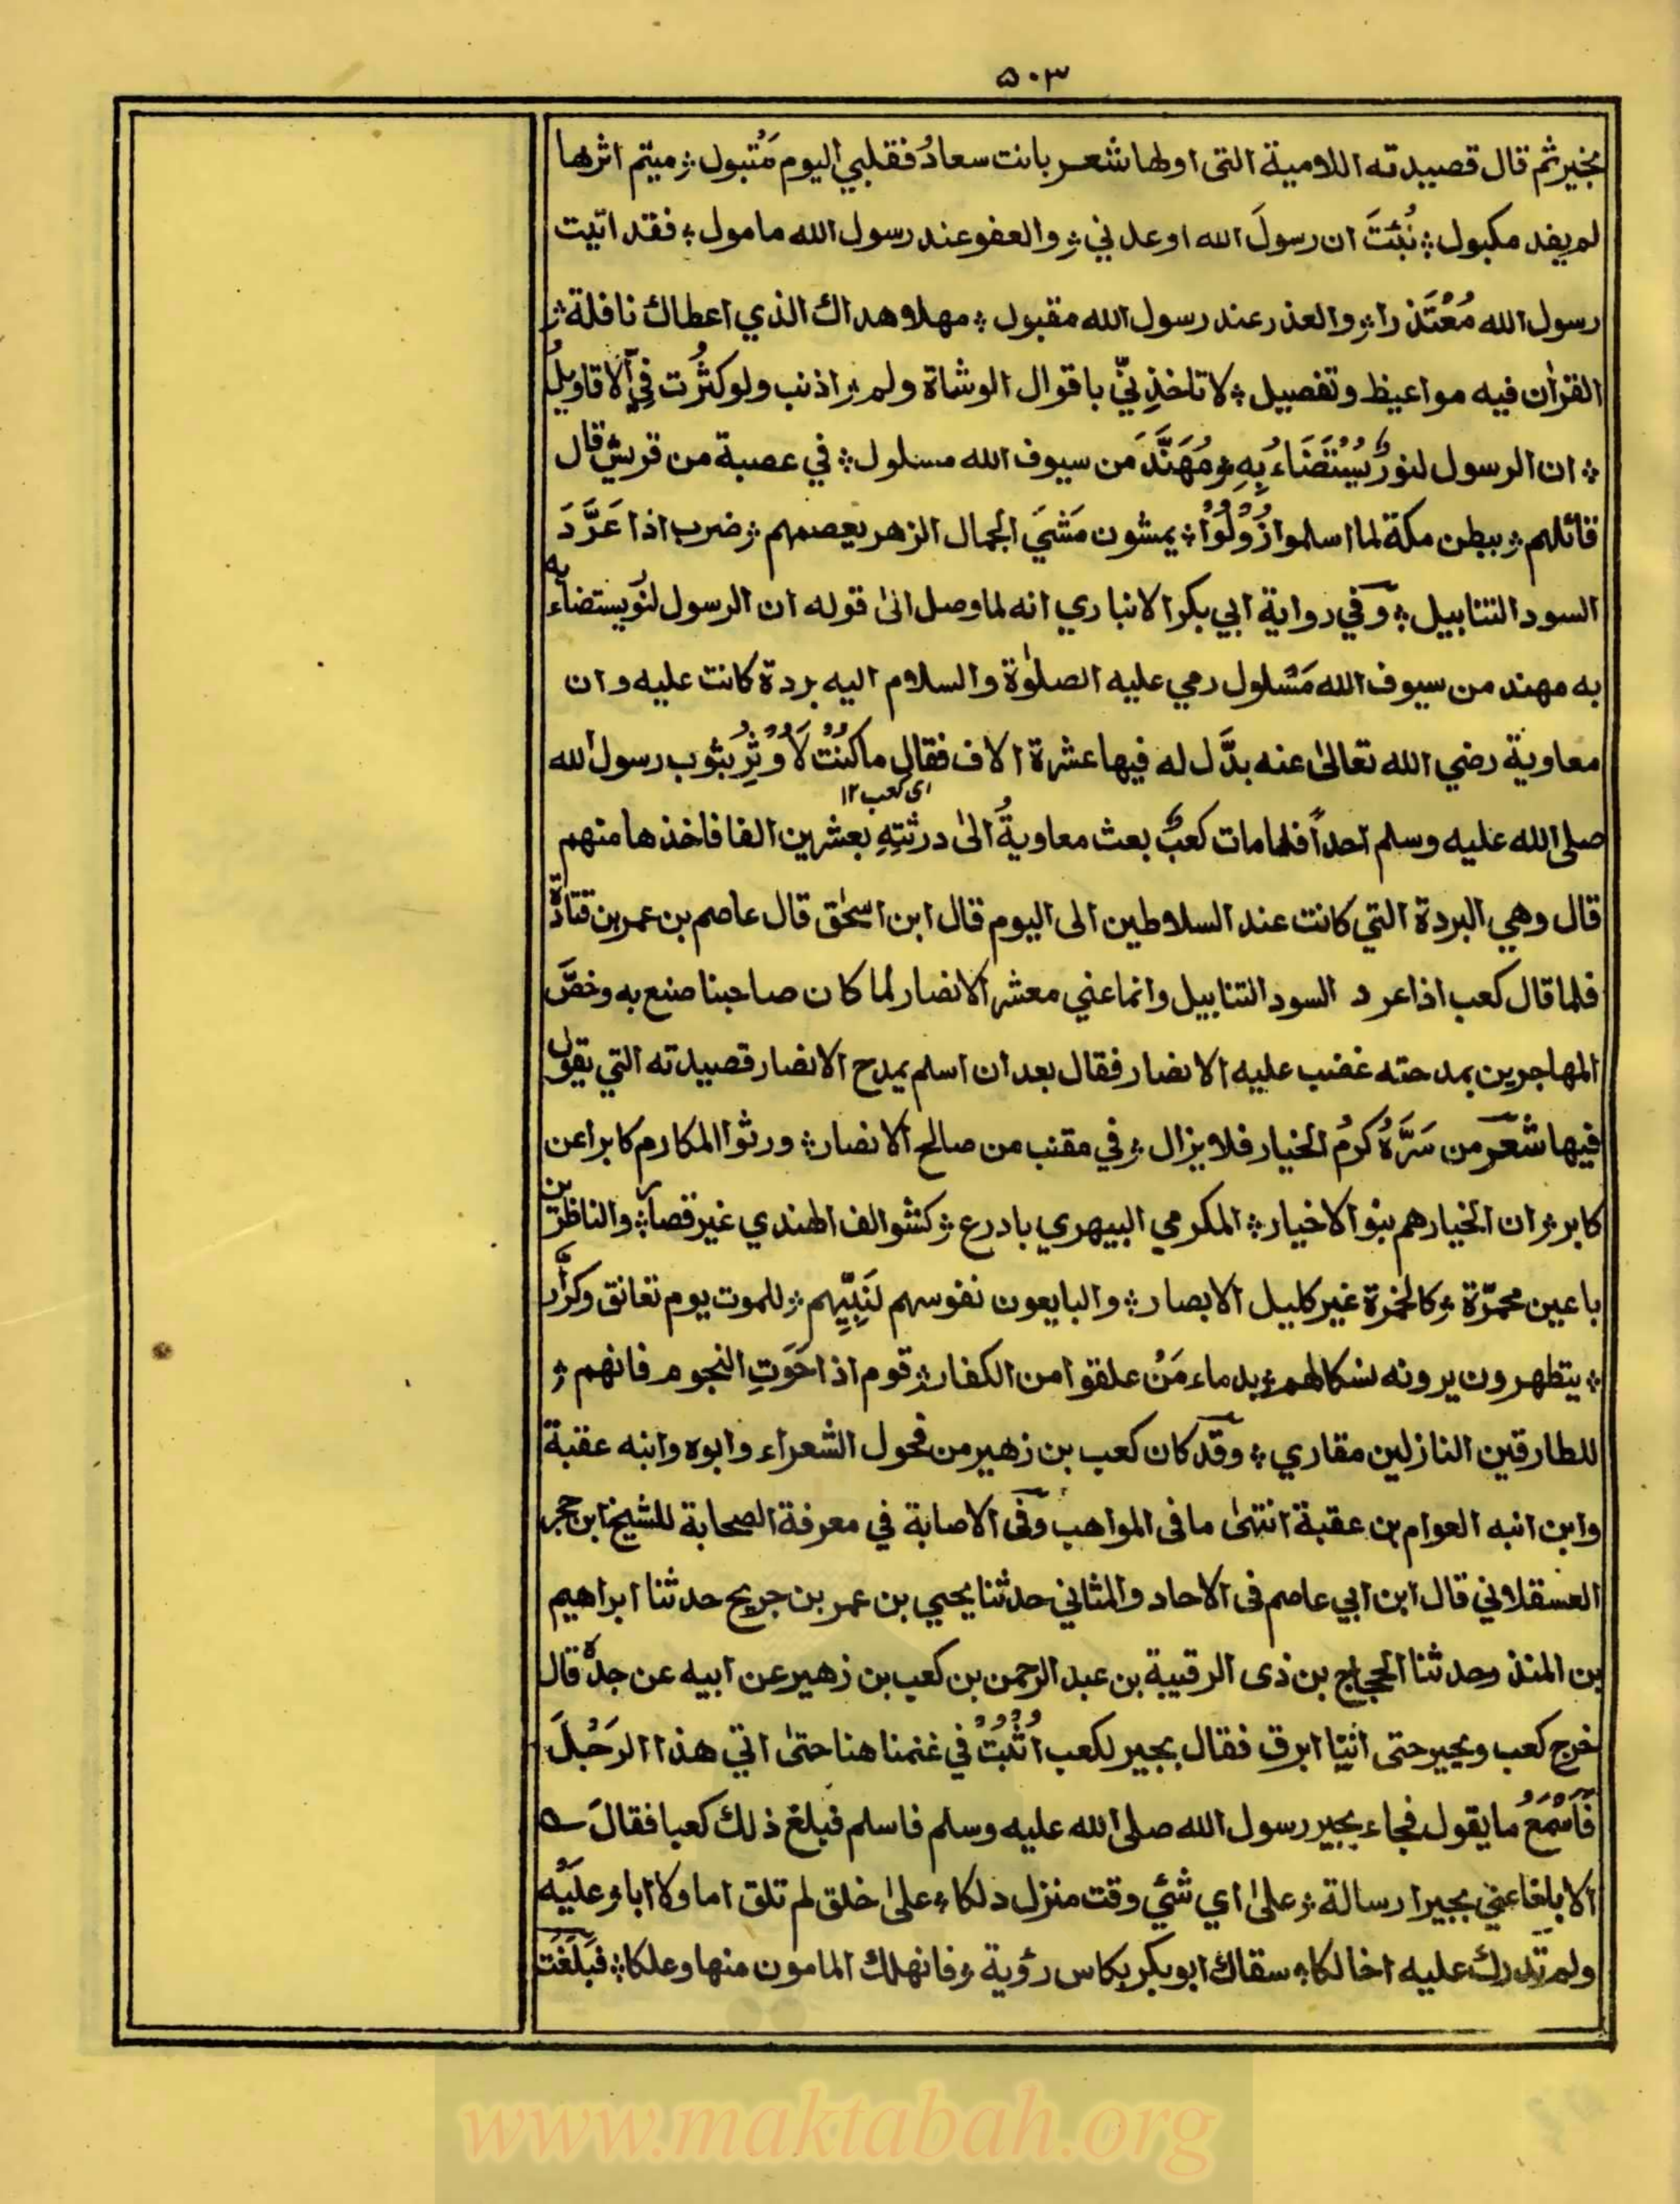 ۵۰۳
بخير ثم قال قصيدته اللامية التى اولها شعر بانت سعادُ فقلبي اليوم مَتْبول ؞ ميتم اثرها
لم يفد مكبول ؞ نُبّئتَ ان رسولَ الله اوعدني ؞ والعفو عند رسول الله مامول ؞ فقد اتيت
رسول الله مُعْتَذرا ؞ والعذر عند رسول الله مقبول ؞ مهلا وهداك الذي اعطاك نافلة ؞
القرٰان فيه مواعيظ وتفصيل ؞ لا تاخذنِيّ باقوال الوشاة ولم ؞ اذنب ولو كثُرت فِي الاقاويلُ
؞ ان الرسول لنورٌ يُسْتَضَاءُ بِهِ ؞ مُهَنَّدَ من سيوف الله مسلول ؞ في عصبة من قريش قال
قائلهم ؞ ببطن مكة لما اسلموا زُوْلُوْا ؞ يمشون مَشْيَ الجمال الزهر يعصمهم ؞ ضرب اذا عَرَّدَ
السود التنابيل ؞ وفي رواية ابي بكر الانباري انه لما وصل الىٰ قوله ان الرسول لنور يستضاء به
به مهند من سيوف الله مَسْلول رمي عليه الصلوٰة والسلام اليه بردة كانت عليه وان
معاوية رضي الله تعالىٰ عنه بذَّل له فيها عشرة الاف فقال ما كُنْتُ لَاُوْثِرُ بثوب رسول الله
اى كعب ۱۲
صلى الله عليه وسلم احداً فلما مات كعبٌ بعث معاويةُ الىٰ درثتِهِ بعشرين الفا فاخذها منهم
قال وهي البردة التي كانت عند السلاطين الى اليوم قال ابن اسحٰق قال عاصم بن عمر بن قتادة
فلما قال كعب اذا عرد السود التنابيل وانما عني معشر الانصار لما كان صاحبنا صنع به وخصَّ
المهاجرين بمدحته غضب عليه الانصار فقال بعد ان اسلم يمدح الانصار قصيدته التي يقول
فيها شعر من سَرَّهُ كرمُ الخيار فلا يزال ؞ في مقنب من صالح الانصار ؞ ورثوا المكارم كابرا عن
كابر ؞ ان الخيار هم بنو الاخيار ؞ المكرمي البيهري بادرع ؞ كشوالف الهندي غير قصار ؞ والناظرين
باعين محمّرّة ؞ كالخمرة غير كليل الابصار ؞ والبايعون نفوسهم لنَبِيِّهم ؞ للموت يوم تعانق وكرَّار
؞ يتطهرون يرونه نسكا لهم ؞ بدماء مَنْ علقوا من الكفار ؞ قوم اذا خَوَتِ النجوم فانهم ؞
للطارقين النازلين مقاري ؞ وقد كان كعب بن زهير من فحول الشعراء وابوه وابنه عقبة
وابن ابنه العوام بن عقبة انتهىٰ ما فى المواهب وفى الاصابة في معرفة الصحابة للشيخ ابن حجر
العسقلاني قال ابن ابي عاصم فى الاحاد والمثاني حدثنا يحيي بن عمر بن جريج حدثنا ابراهيم
بن المنذر وحدثنا الحجاج بن ذى الرقيبة بن عبد الرحمن بن كعب بن زهير عن ابيه عن جده قال
خرج كعب وبجير حتى اتيا ابرق فقال بجير لكعب اُثْبُتْ في غنمنا هنا حتىٰ اتي هذا الرَجُلَ
فَاَسْمَعُ ما يقول فجاء بجير رسول الله صلى الله عليه وسلم فاسلم فبلغ ذلك كعبا فقالَ
الا بلغا عني بجيرا رسالة ؞ علىٰ اي شئي وقت منزل دلكا ؞ علىٰ خلق لم تلق اما ولا ابا ؞ عليه
ولم تدرك عليه اخا لكا ؞ سقاك ابو بكر بكاس رؤية ؞ فانهلك المامون منها وعلكا ؞ فبلغت
www.maktabah.org